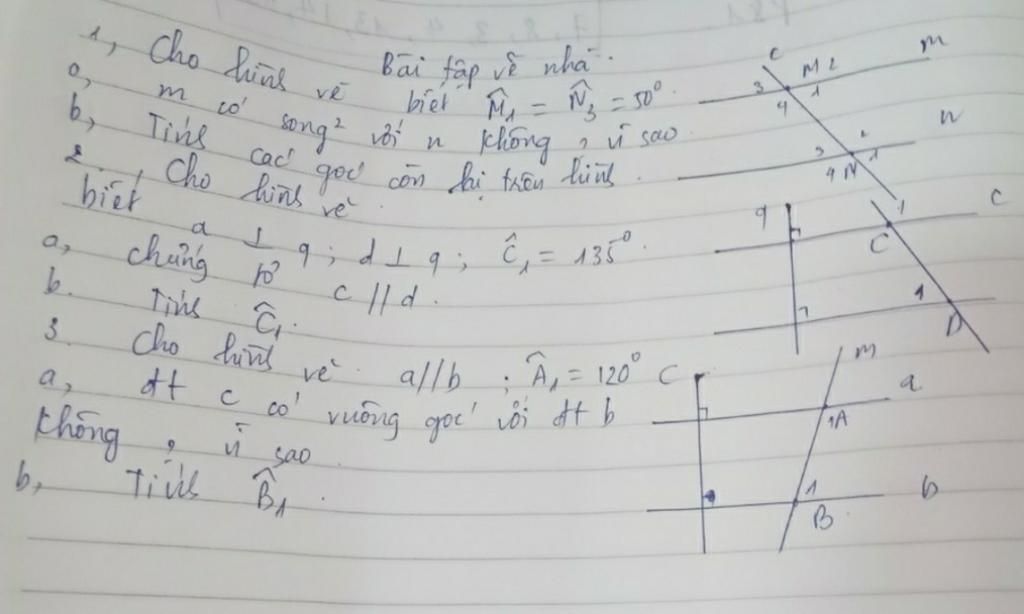 Bài tập về nhà.
1, Cho hình vẽ biết M̂₁ = N̂₃ = 50°.
a, m có song² với n không, vì sao
b, Tính các góc còn lại trên hình.
2, Cho hình vẽ
biết a ⊥ q ; d ⊥ q ; Ĉ₁ = 135°.
a, chứng tỏ c // d.
b. Tính Ĉ₁.
3. Cho hình vẽ. a//b ; Â₁ = 120°
a, đt c có vuông góc với đt b
không, vì sao.
b, Tính B̂₁.
c
m
M 2
3
1
4
n
2
3
1
4 N
q
1
c
C
1
D
m
C
a
1A
1
b
B